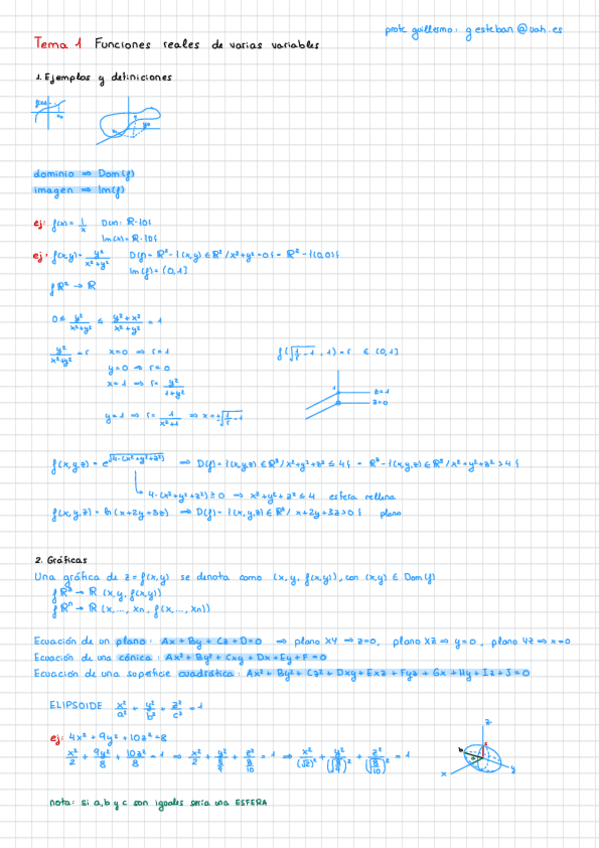 profe guillermo: g.esteban@uah.es
Tema 1 Funciones reales de varias variables
1. Ejemplos y definiciones
dominio ⇒ Dom(f)
imagen ⇒ Im(f)
ej: f(x) = 1/x D(x): R-{0}
Im(x) = R-{0}
ej: f(x,y) = y²/(x²+y²) D(f) = R² - {(x,y) ∈ R² / x²+y² = 0} = R² - {(0,0)}
Im(f) = [0,1]
f R² → R
0 ≤ y²/(x²+y²) ≤ (y²+x²)/(x²+y²) = 1
y²/(x²+y²) = r x=0 ⇒ r=1 f(√(1/r - 1), 1) = r ∈ (0,1]
y=0 ⇒ r=0
x=1 ⇒ r = y²/(1+y²)
1 z=1
z=0
y=1 ⇒ r = 1/(x²+1) ⇒ x = ±√(1/r - 1)
f(x,y,z) = e^√(4-(x²+y²+z²)) ⇒ D(f) = {(x,y,z) ∈ R³ / x²+y²+z² ≤ 4} = R³ - {(x,y,z) ∈ R³ / x²+y²+z² > 4}
4-(x²+y²+z²) ≥ 0 ⇒ x²+y²+z² ≤ 4 esfera rellena
f(x,y,z) = ln(x+2y+3z) ⇒ D(f) = {(x,y,z) ∈ R³ / x+2y+3z > 0} plano
2. Gráficas
Una gráfica de z = f(x,y) se denota como (x, y, f(x,y)), con (x,y) ∈ Dom(f)
f R² → R (x, y, f(x,y))
f Rⁿ → R (x, ..., xn, f(x, ..., xn))
Ecuación de un plano: Ax + By + Cz + D = 0 ⇒ plano XY ⇒ z=0, plano XZ ⇒ y=0, plano YZ ⇒ x=0
Ecuación de una cónica: Ax² + By² + Cxy + Dx + Ey + F = 0
Ecuación de una superficie cuadrática: Ax² + By² + Cz² + Dxy + Exz + Fyz + Gx + Hy + Iz + J = 0
ELIPSOIDE x²/a² + y²/b² + z²/c² = 1
ej: 4x² + 9y² + 10z² = 8
x²/2 + 9y²/8 + 10z²/8 = 1 ⇒ x²/2 + y²/(8/9) + z²/(8/10) = 1 ⇒ x²/(√2)² + y²/(√(8/9))² + z²/(√(8/10))² = 1
z
b
a
x
y
nota: si a, b y c son iguales sería una ESFERA